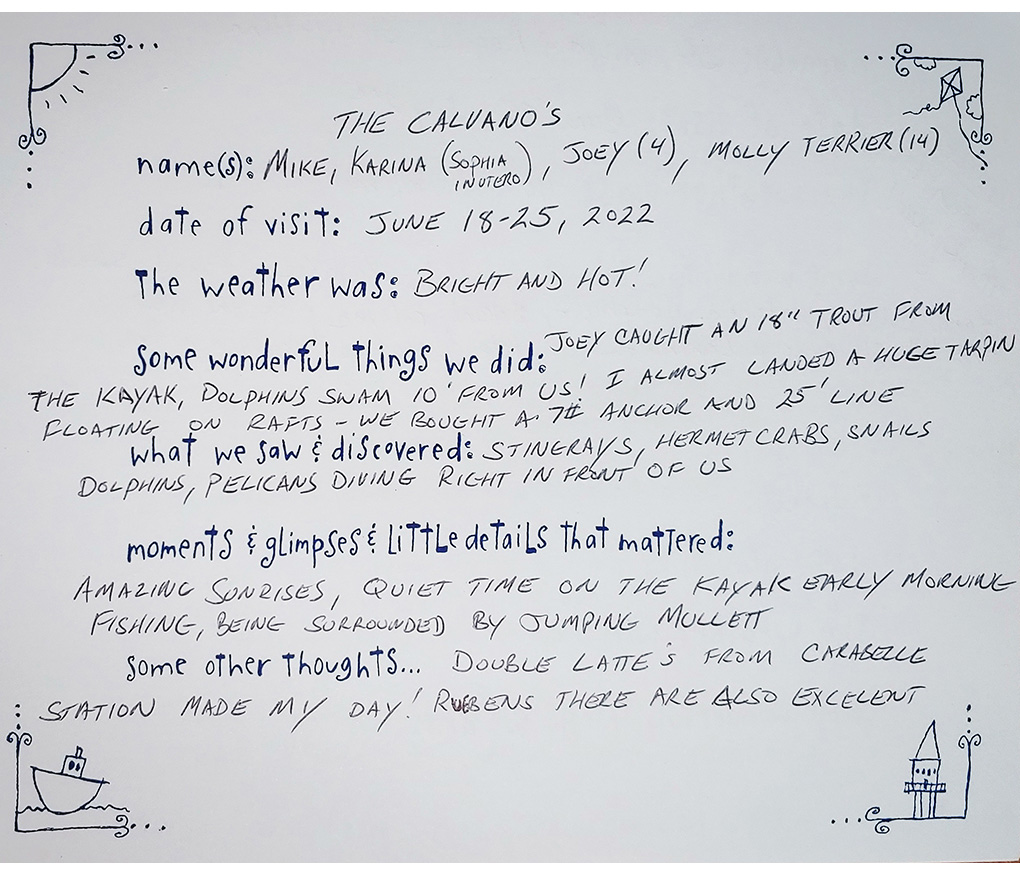 THE CALVANO'S
name(s): MIKE, KARINA (SOPHIA IN UTERO), JOEY (4), MOLLY TERRIER (14)
date of visit: JUNE 18-25, 2022
The weather was: BRIGHT AND HOT!
some wonderful things we did: JOEY CAUGHT AN 18" TROUT FROM
THE KAYAK, DOLPHINS SWAM 10' FROM US! I ALMOST LANDED A HUGE TARPIN
FLOATING ON RAFTS - WE BOUGHT A 7# ANCHOR AND 25' LINE
what we saw & discovered: STINGRAYS, HERMET CRABS, SNAILS
DOLPHINS, PELICANS DIVING RIGHT IN FRONT OF US
moments & glimpses & little details that mattered:
AMAZING SUNRISES, QUIET TIME ON THE KAYAK EARLY MORNING
FISHING, BEING SURROUNDED BY JUMPING MULLETT
some other thoughts... DOUBLE LATTE'S FROM CARABELLE
STATION MADE MY DAY! RUEBENS THERE ARE ALSO EXCELENT